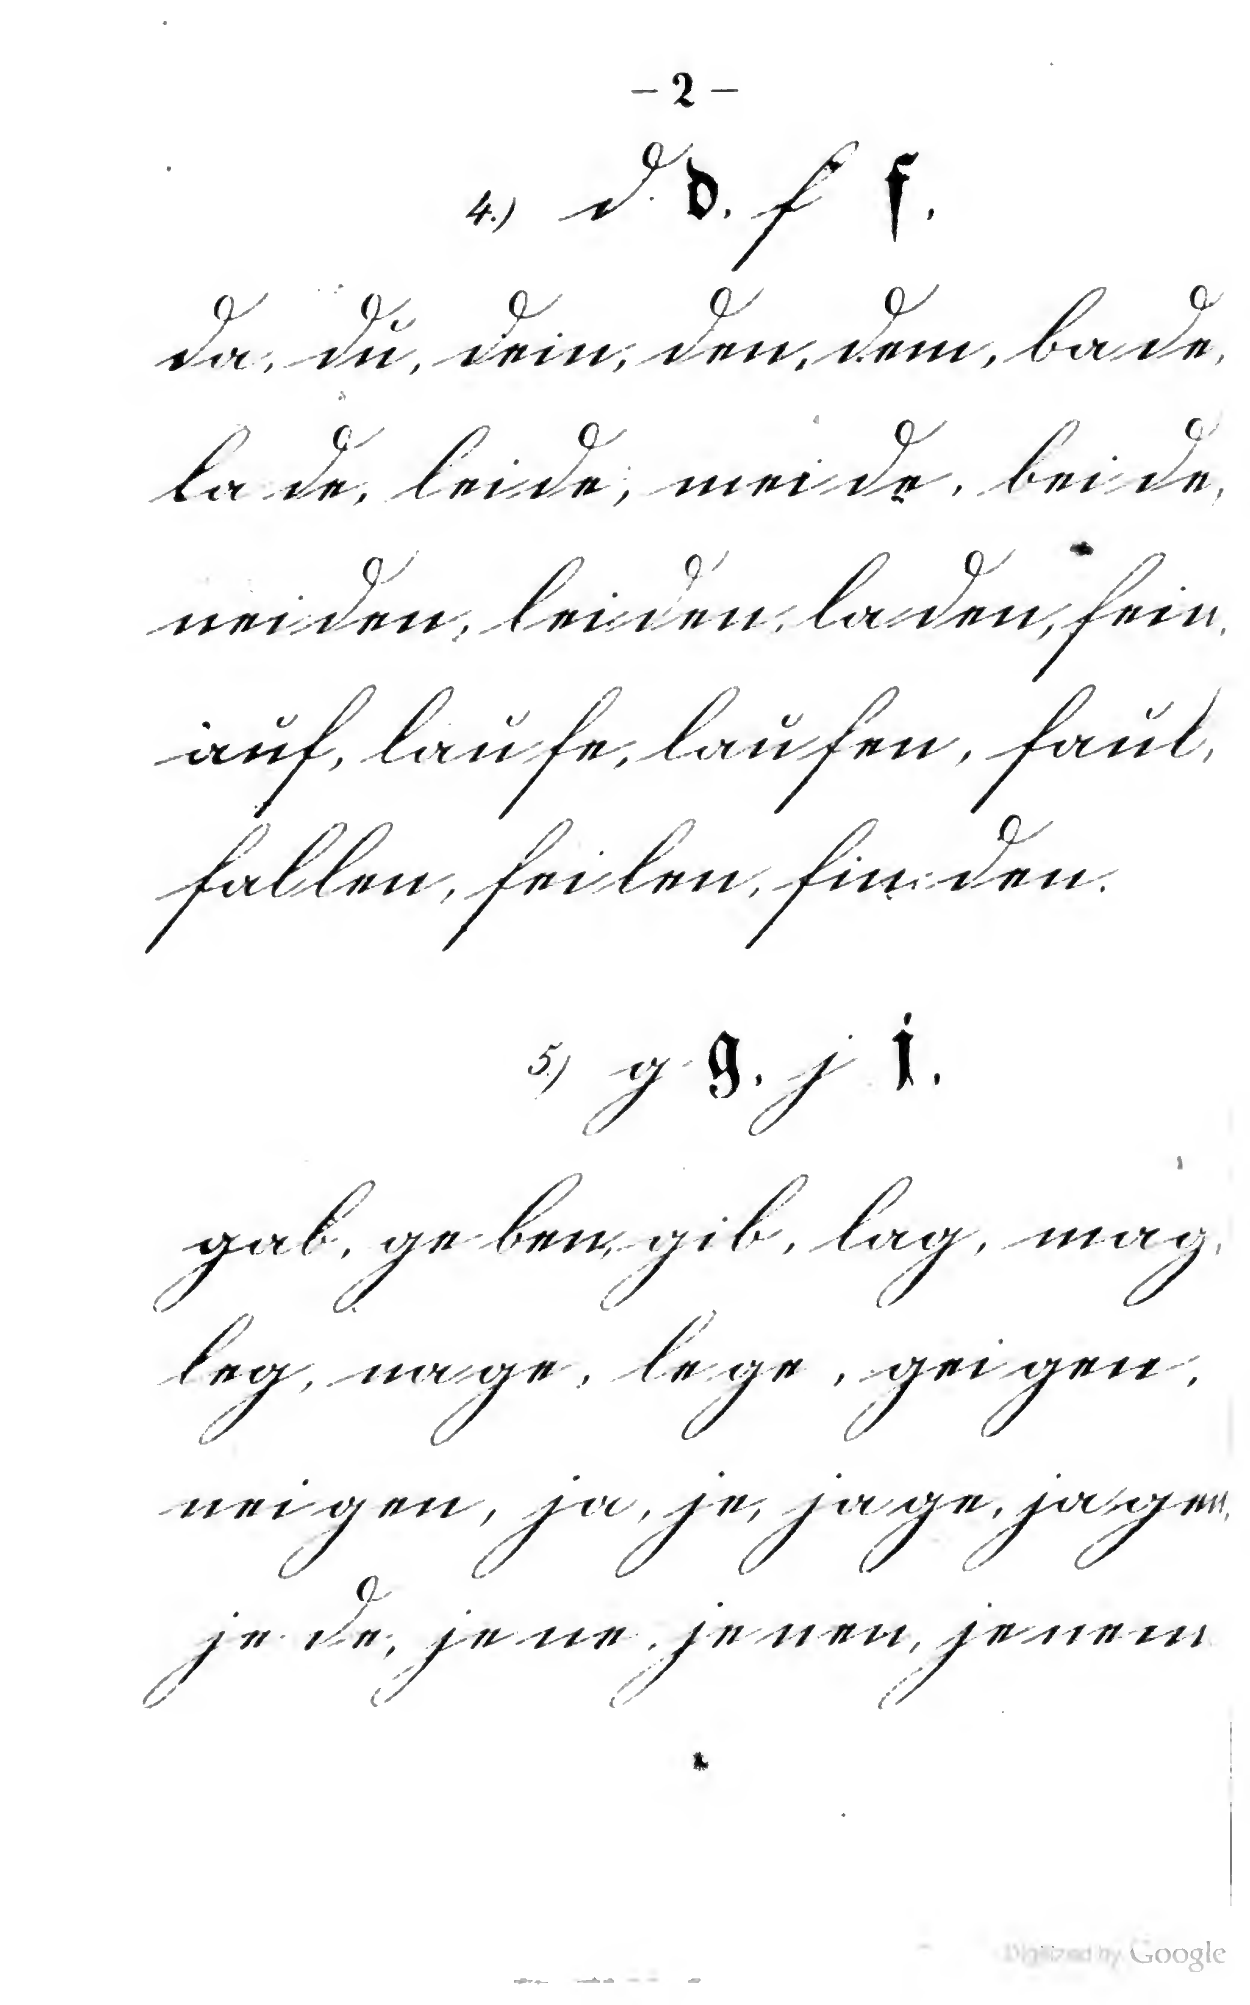 – 2 –
4.) d d. f f.
da, du, dein, den, dem, bade,
lade, leide, meide, beide,
neiden, leiden, laden, fein,
auf, laufe, laufen, faul,
fallen, feilen, finden.
5.) g g. j j.
gab, geben, gib, lag, mag,
leg, nage, lege, geigen,
neigen, ja, je, jage, jagen,
jede, jene, jenen, jenem
Digitized by Google